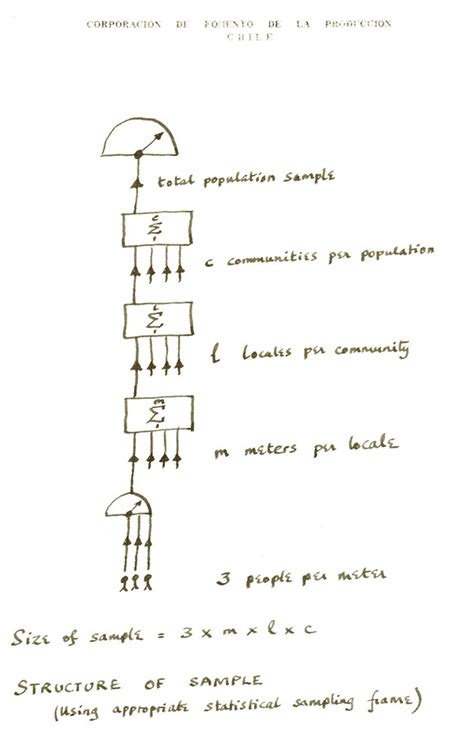 CORPORACION DE FOMENTO DE LA PRODUCCION
CHILE
total population sample
c
Σ
1
c communities per population
l
Σ
1
l locales per community
m
Σ
1
m meters per locale
3 people per meter
Size of sample = 3 × m × l × c
STRUCTURE OF SAMPLE
(Using appropriate statistical sampling frame)